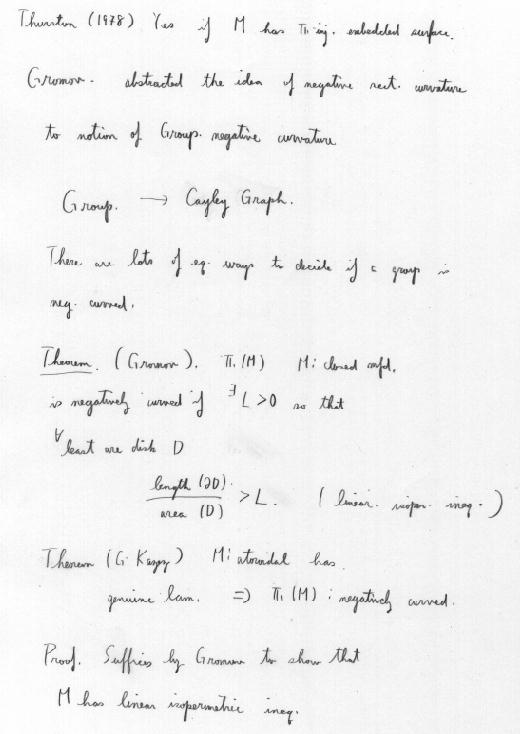 Thurston (1978) Yes if M has π₁ inj. embedded surface.
Gromov. abstracted the idea of negative sect. curvature
to notion of Group. negative curvature
Group. → Cayley Graph.
There are lots of eq. ways to decide if a group is
neg. curved.
Theorem. (Gromov). π₁(M) M: closed mfd.
is negatively curved if ∃L>0 so that
∀ least are disk D
length (∂D) / area (D) > L. (linear isoper. ineq.)
Theorem (G. Kazez) M: atoroidal has
genuine lam. ⇒ π₁(M): negatively curved.
Proof. Suffices by Gromov to show that
M has linear isopermetric ineq.